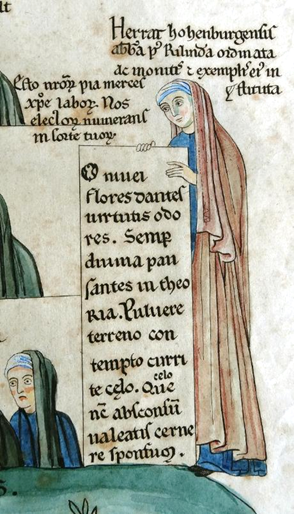 lt
Herrat hohenburgensis
abb̄a p᷒ Rilinda ordinata
ac monitis ⁊ exempl' ei' in
stituta
Esto nr̄oꝝ pia merces
xp̄e laboꝝ. Nos
electoꝝ numerans
in sorte tuoꝝ.
O niuei
flores dantes
uirtutis odo
res. Semp̱
diuina pau
santes in theo
ria. Puluere
terreno con
tempto curri
te cęlo. Que
celo
nc̄ absconsū
ualeatis cerne
re sponsū.
S.